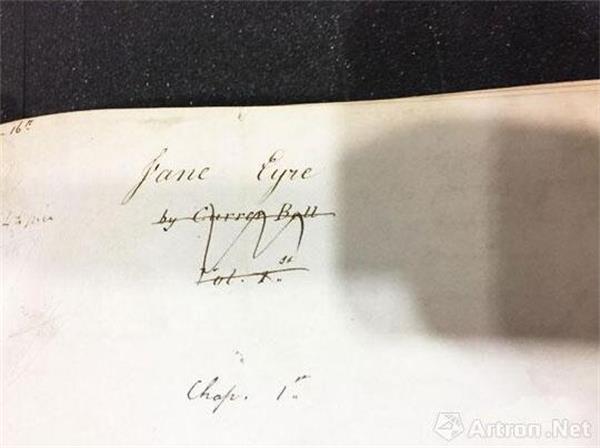 16th
Jane Eyre
by Currer Bell
Vol. 1.st
Chap. 1.st
Artron.Net